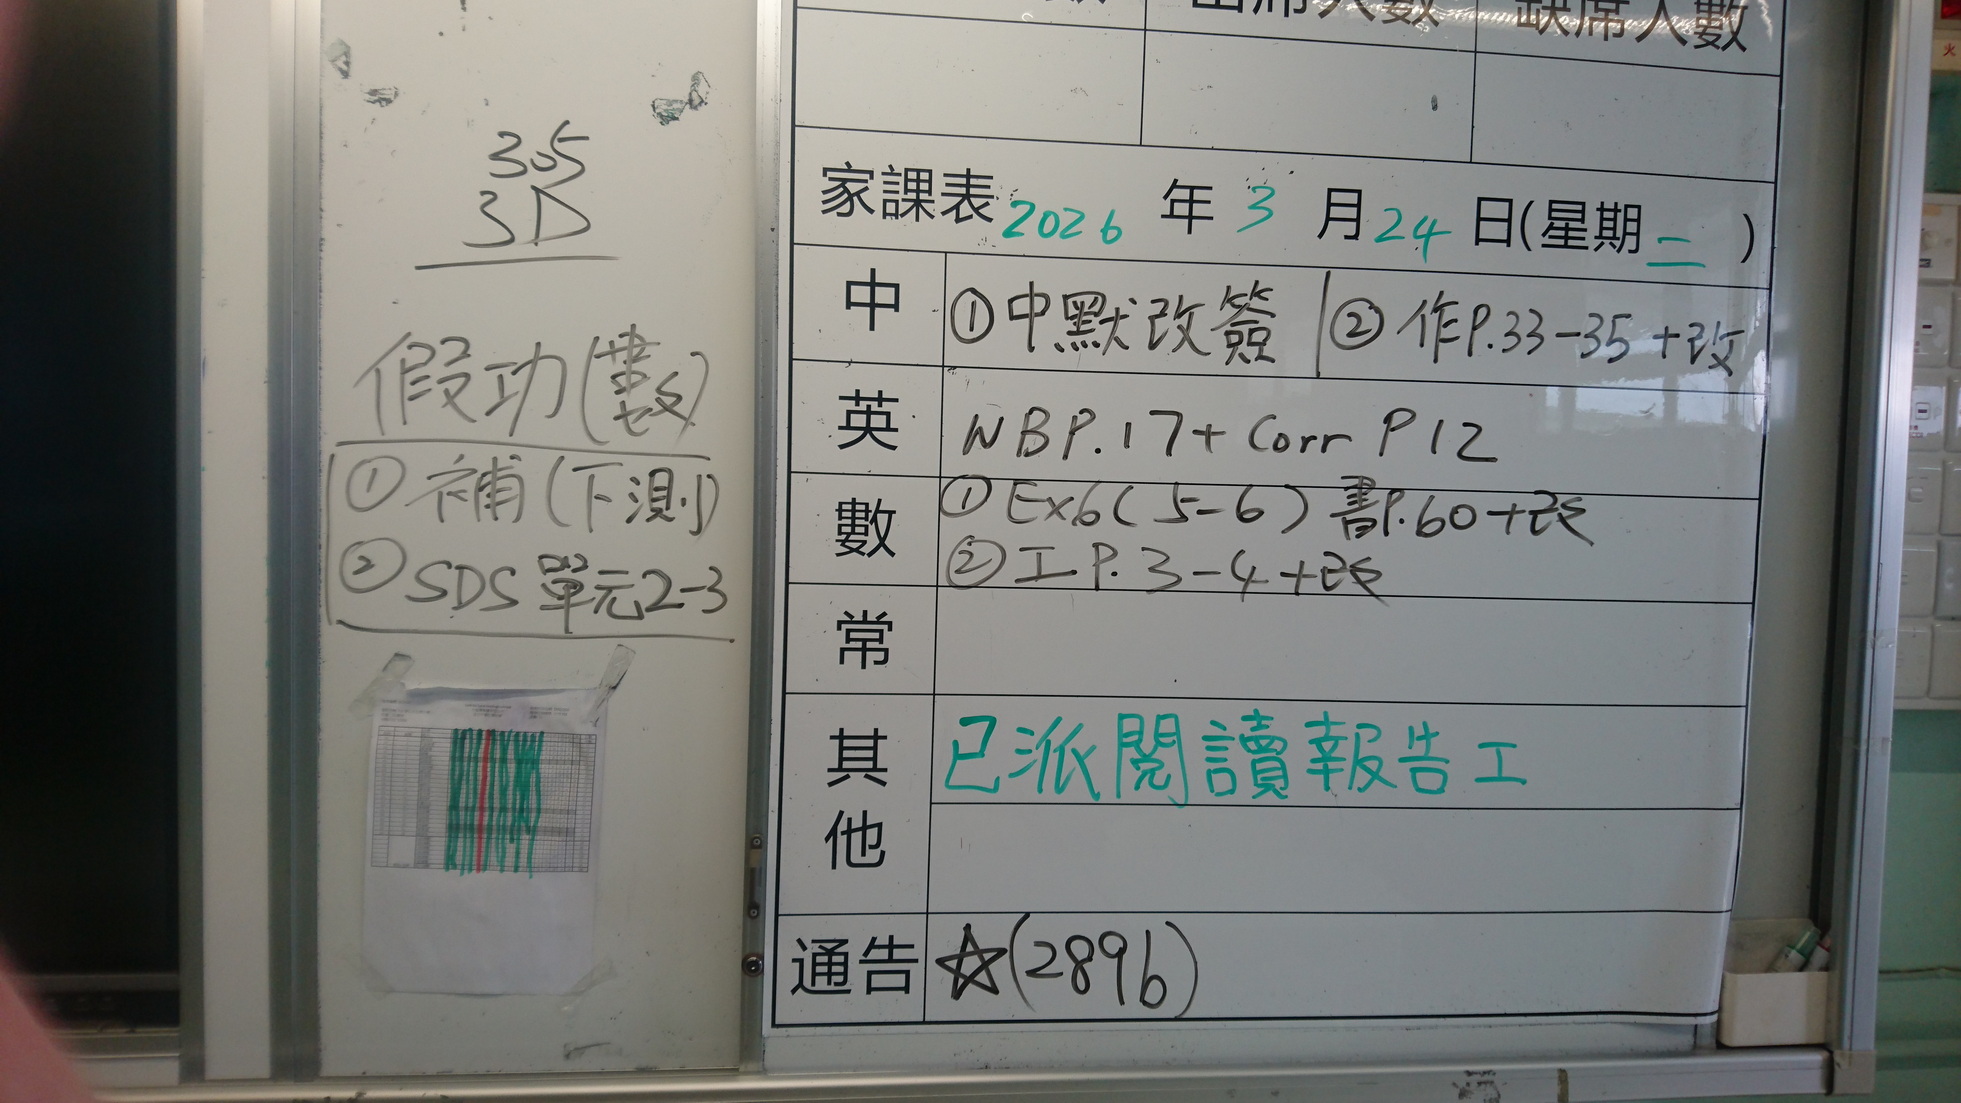 305
3D
假功(數)
① 補(下測)
② SDS 單元2-3
出席人數 缺席人數
家課表 2026 年 3 月 24 日(星期二)
中 ①中默改簽 | ② 作P.33-35+改
英 NB P.17+ Corr P12
數 ① Ex6(5-6) 書P.60+改
② 工 P.3-4+改
常
其他 已派閱讀報告工
通告 ☆(289b)
火